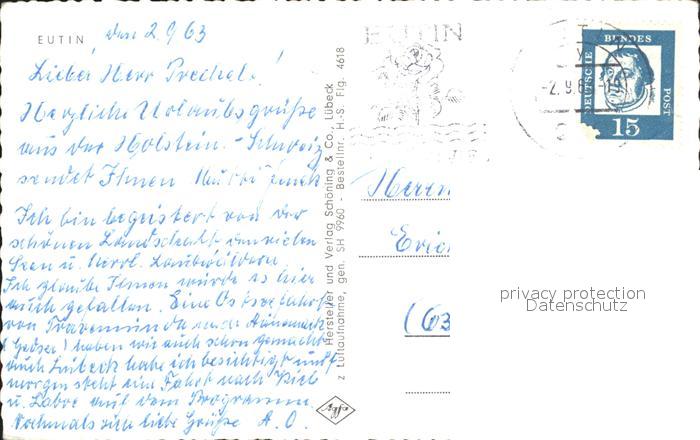 EUTIN, den 2.9.63
Lieber Herr
Herzliche Urlaubsgrüße
aus der Holstein.-Schweiz
sendet Ihnen
Ich bin begeistert von der
schönen Landschaft den vielen
Seen u. herrl. Laubwäldern.
Ich glaube Ihnen würde es hier
auch gefallen. Eine Ostseefahrt
von Travemünde nach Dänemark
(Gedser) haben wir auch schon gemacht
auch Lübeck habe ich besichtigt und
morgen steht eine Fahrt nach Kiel
u. Laboe auf dem Programm.
Nochmals viele liebe Grüße A. O.
Hersteller und Verlag Schöning & Co., Lübeck
z Luftaufnahme, gen. SH 9960 - Bestellnr. H.-S. Flg. 4618
Agfa
EUTIN
-2.9.6
DEUTSCHE
BUNDES
POST
15
Herrn
Eric
(63
privacy protection
Datenschutz